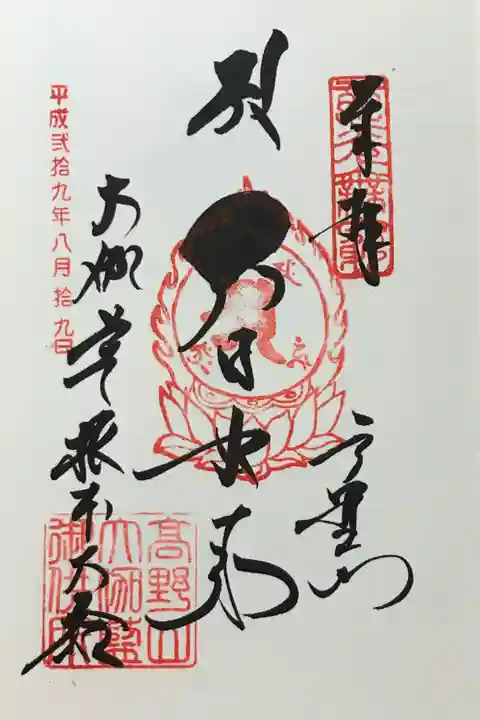 奉拝
高野山
大日如来
大伽藍根本大塔
平成弐拾九年八月拾九日
高野山
大伽藍
御供所